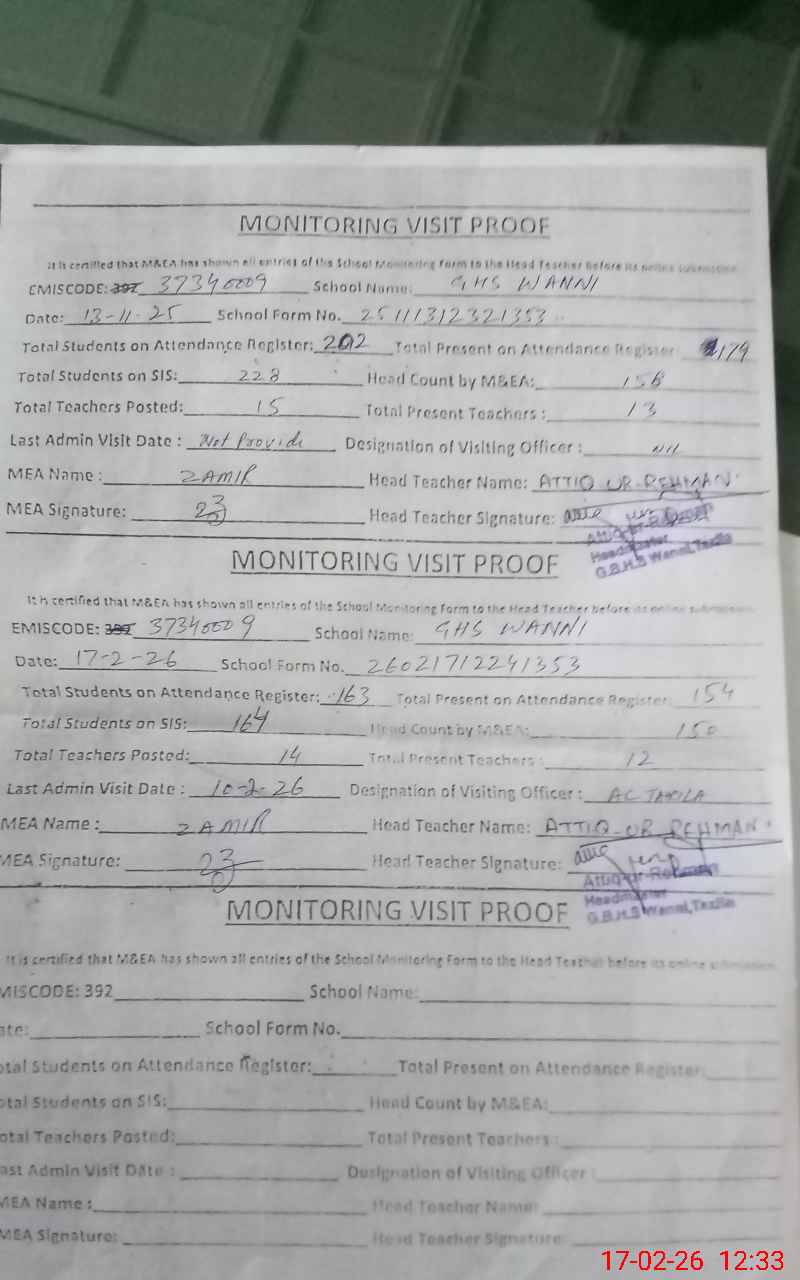 MONITORING VISIT PROOF
It is certified that M&EA has shown all entries of the School Monitoring Form to the Head Teacher before its online submission
EMISCODE: 392 37340009 School Name: GHS WANNI
Date: 13-11-25 School Form No. 25111312321353
Total Students on Attendance Register: 202 Total Present on Attendance Register: 179
Total Students on SIS: 228 Head Count by M&EA: 158
Total Teachers Posted: 15 Total Present Teachers : 13
Last Admin Visit Date : Not Provide Designation of Visiting Officer : Nil
MEA Name : ZAMIR Head Teacher Name: ATTIQ UR REHMAN
MEA Signature: Head Teacher Signature:
Attiq ur Rehman
Headmaster
G.B.H.S Wanni, Taxila
MONITORING VISIT PROOF
It is certified that M&EA has shown all entries of the School Monitoring Form to the Head Teacher before its online submission
EMISCODE: 392 37340009 School Name: GHS WANNI
Date: 17-2-26 School Form No. 26021712241353
Total Students on Attendance Register: 163 Total Present on Attendance Register: 154
Total Students on SIS: 164 Head Count by M&EA: 150
Total Teachers Posted: 14 Total Present Teachers : 12
Last Admin Visit Date : 10-2-26 Designation of Visiting Officer : AC TAXILA
MEA Name : ZAMIR Head Teacher Name: ATTIQ UR REHMAN
MEA Signature: Head Teacher Signature:
Attiq ur Rehman
Headmaster
G.B.H.S Wanni, Taxila
MONITORING VISIT PROOF
It is certified that M&EA has shown all entries of the School Monitoring Form to the Head Teacher before its online submission
MISCODE: 392 School Name:
ate: School Form No.
otal Students on Attendance Register: Total Present on Attendance Register:
otal Students on SIS: Head Count by M&EA:
otal Teachers Posted: Total Present Teachers :
ast Admin Visit Date : Designation of Visiting Officer :
MEA Name : Head Teacher Name:
MEA Signature: Head Teacher Signature:
17-02-26 12:33